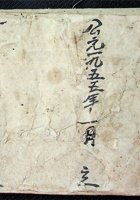 公元一九五五年十一月 立